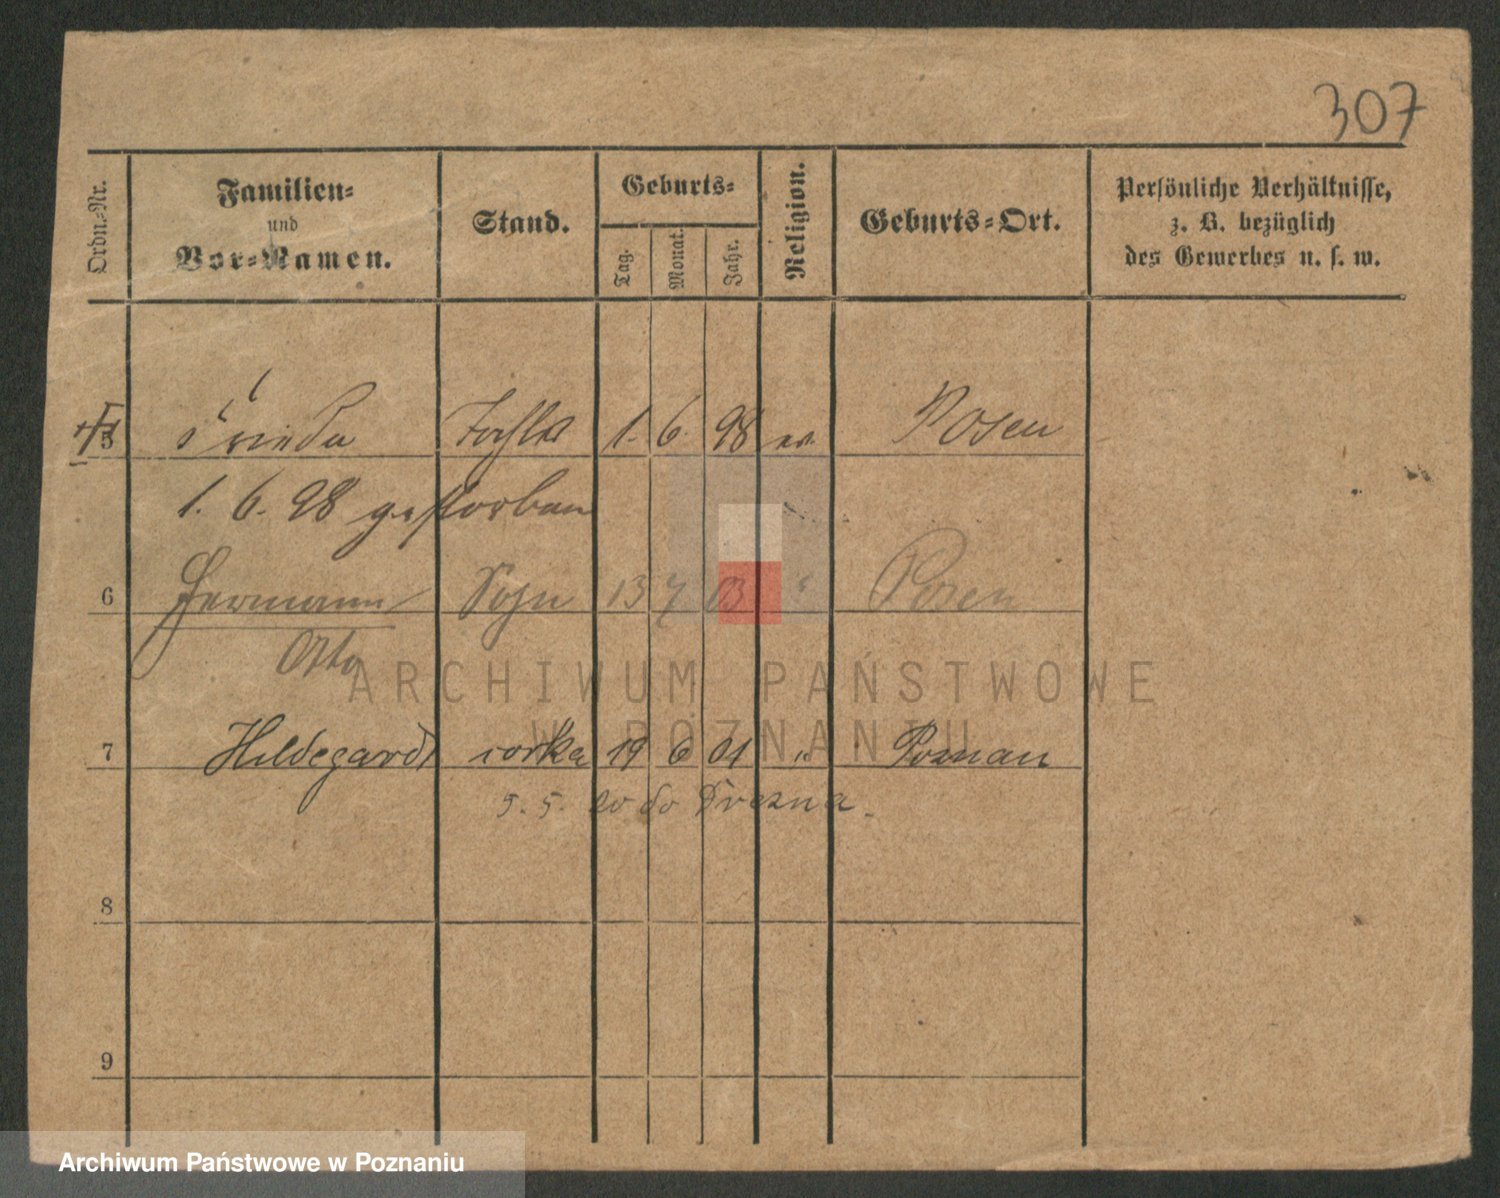 307
Ordn.-Nr.
Familien-
und
Vor-Namen.
Stand.
Geburts-
Tag.
Monat.
Jahr.
Religion.
Geburts-Ort.
Persönliche Verhältnisse,
z. B. bezüglich
des Gewerbes u. s. w.
5 Frieda Tochter 1. 6. 98 ev. Posen
1. 6. 98 gestorben
6 Hermann Sohn 13 7 03 " Posen
Otto
ARCHIWUM PAŃSTWOWE
W POZNANIU
7 Hildegard corka 19 6 01 " Poznan
5. 5. 20 do Drezna.
8
9
Archiwum Państwowe w Poznaniu